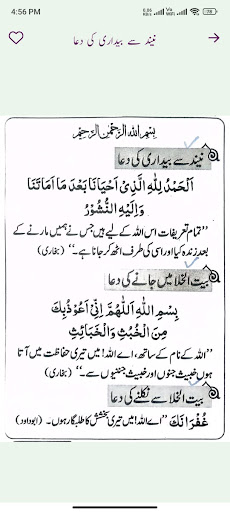 4:56 PM
نیند سے بیداری کی دعا
بِسْمِ اللهِ الرَّحْمٰنِ الرَّحِيْمِ
نیند سے بیداری کی دعا
اَلْحَمْدُ لِلّٰهِ الَّذِيْ اَحْيَانَا بَعْدَ مَا اَمَاتَنَا
وَاِلَيْهِ النُّشُوْرُ
”تمام تعریفات اس اللہ کے لیے ہیں جس نے ہمیں مارنے کے
بعد زندہ کیا اور اسی کی طرف اٹھ کر جانا ہے۔“ (بخاری)
بیت الخلا میں جانے کی دعا
بِسْمِ اللهِ اَللّٰهُمَّ اِنِّيْ اَعُوْذُ بِكَ
مِنَ الْخُبُثِ وَالْخَبَائِثِ
”اللہ کے نام کے ساتھ، اے اللہ! میں تیری حفاظت میں آتا
ہوں خبیث جنوں اور خبیث جنّیوں سے۔“ (بخاری)
بیت الخلا سے نکلنے کی دعا
غُفْرَانَكَ ”اے اللہ! میں تیری بخشش کا طلبگار ہوں۔ (ابوداود)